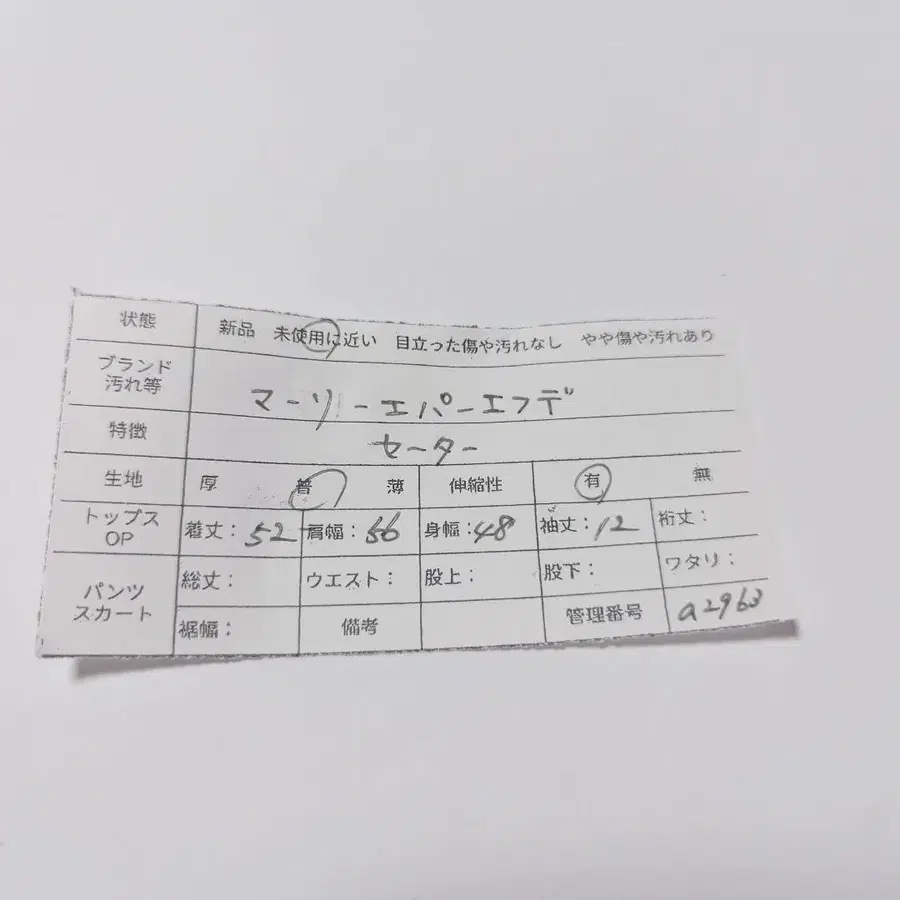 状態 新品 未使用に近い 目立った傷や汚れなし やや傷や汚れあり
ブランド
汚れ等 マーリーエパーエフデ
特徴 セーター
生地 厚 普 薄 伸縮性 有 無
トップス
OP 着丈：52 肩幅：56 身幅：48 袖丈：12 裄丈：
パンツ
スカート 総丈： ウエスト： 股上： 股下： ワタリ：
裾幅： 備考 管理番号 a2963